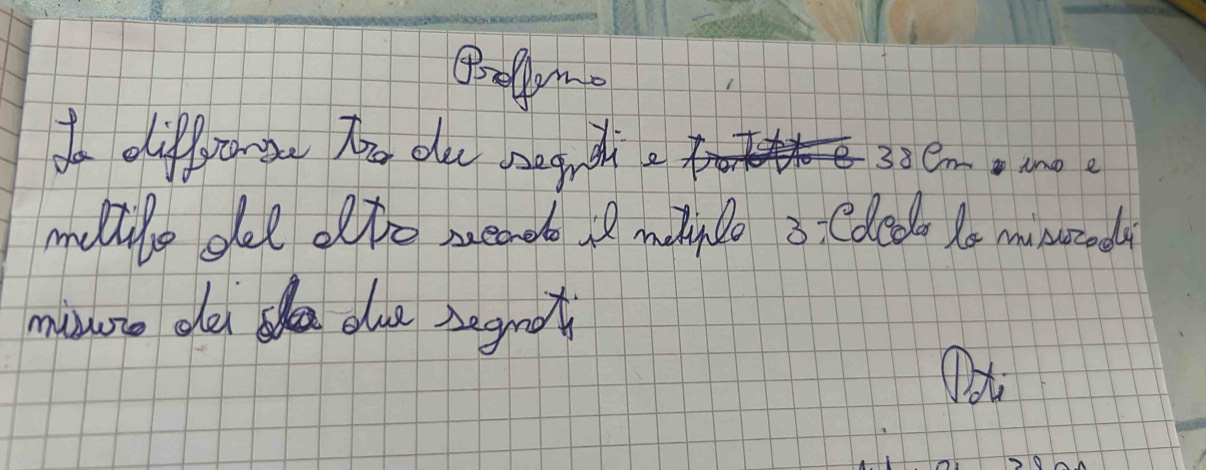 Problema
La differenza tra due segmti e 38 cm. uno e
multiplo del altro secondo il multiplo 3. Calcola la misura dei
misura dei due segmti
Dati